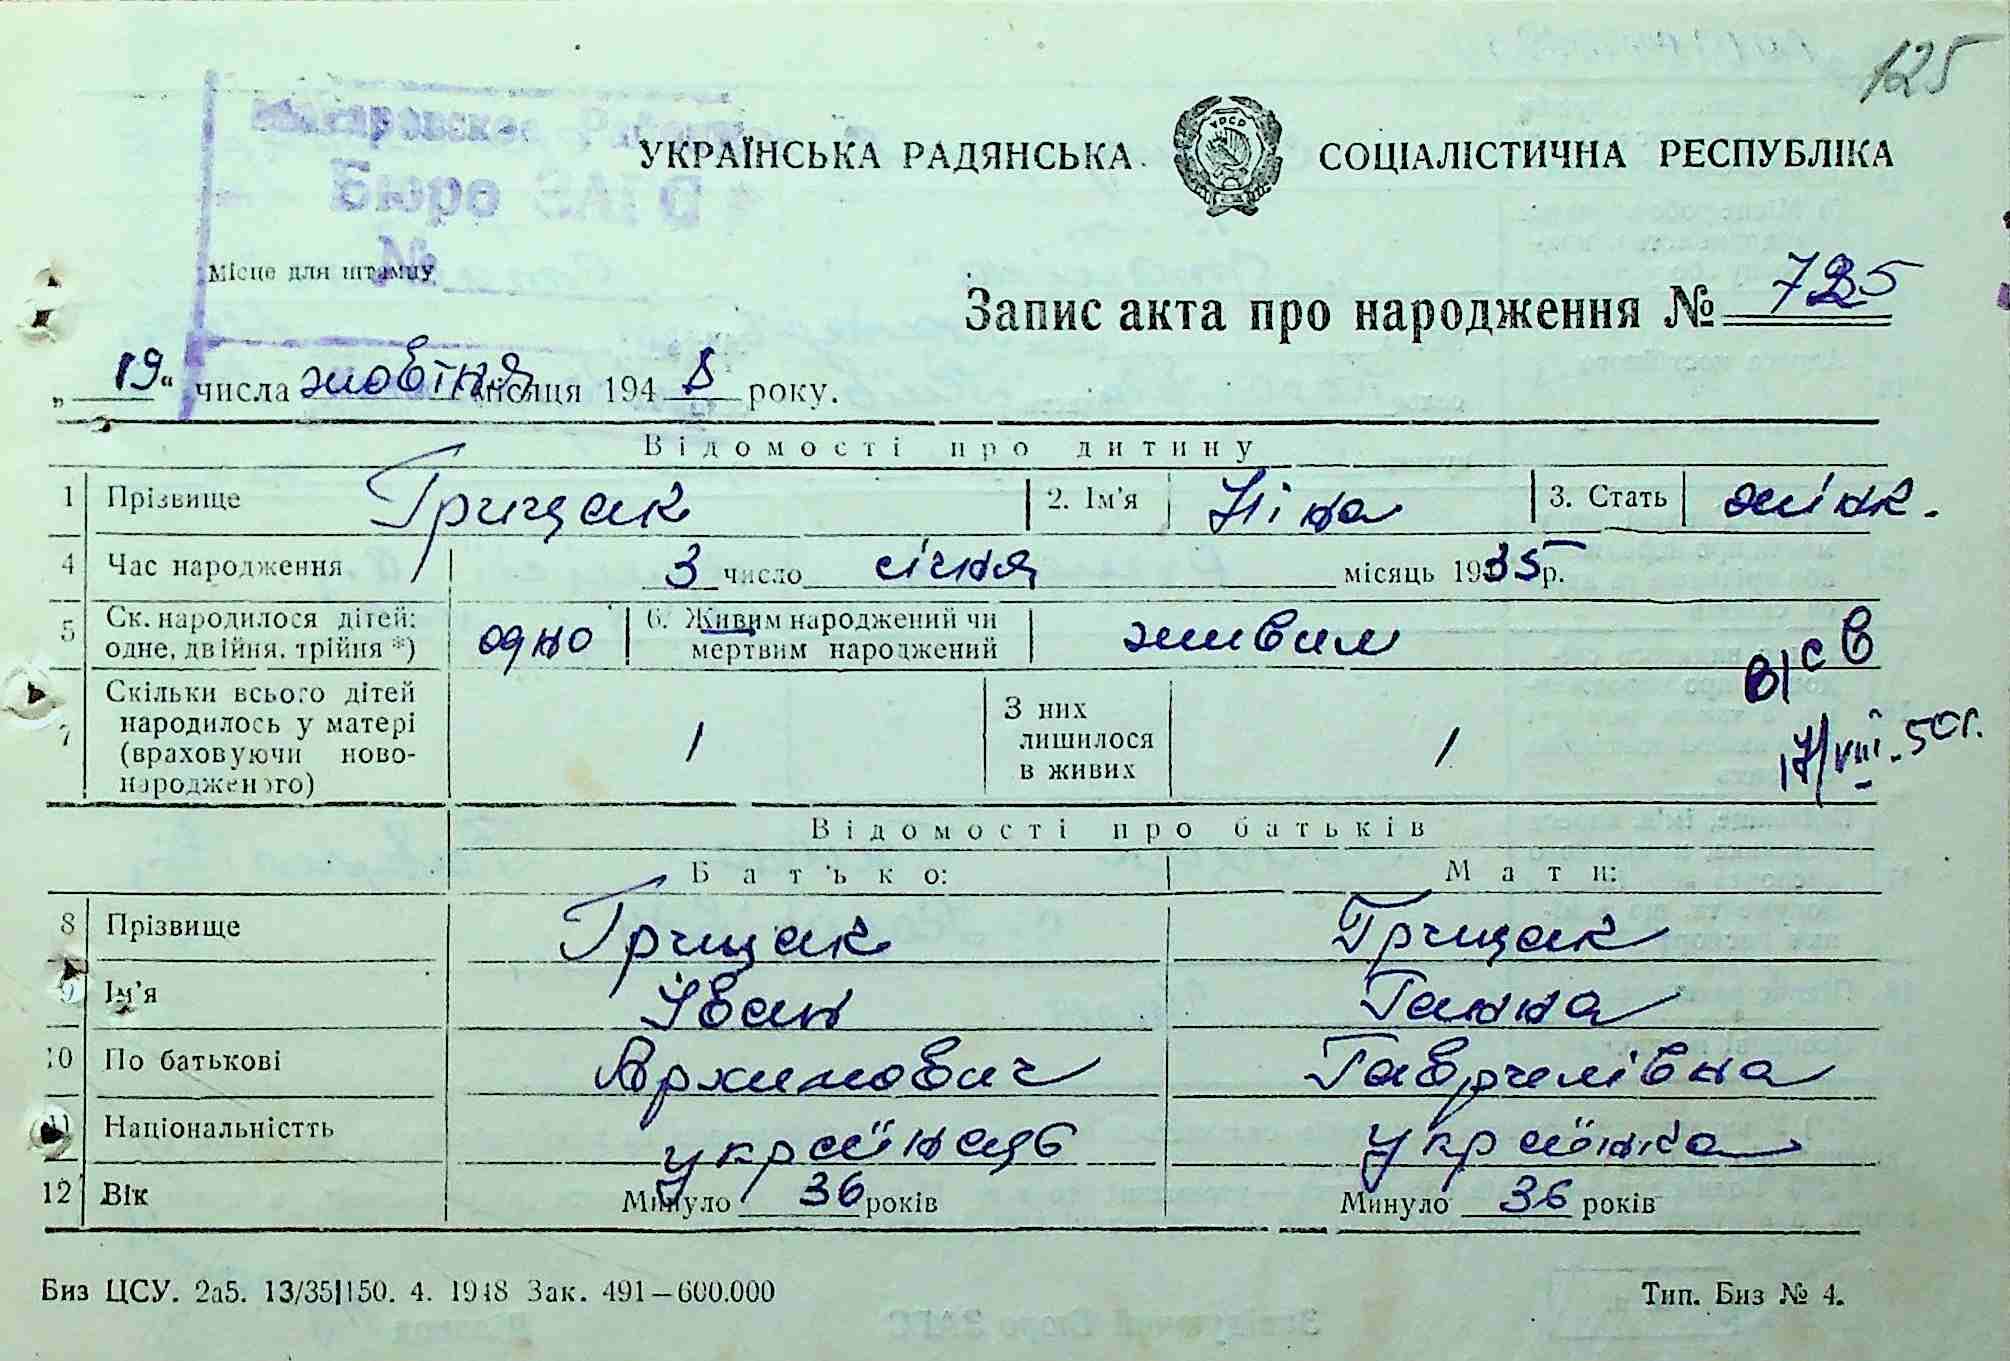 125
Макаровское
Бюро ЗАГС
№
УКРАЇНСЬКА РАДЯНСЬКА СОЦІАЛІСТИЧНА РЕСПУБЛІКА
УРСР
Місце для штампу
Запис акта про народження № 725
„ 19 “ числа жовтня місяця 194 8 року.
Відомості про дитину
1 Прізвище Грищак 2. Ім'я Ніна 3. Стать жінк.
4 Час народження 3 число січня місяць 1935 р.
5 Ск. народилося дітей: одно 6. Живим народжений чи живим
одне, двійня, трійня *) мертвим народжений
в/св
7 Скільки всього дітей 1 З них 1
народилось у матері лишилося
(враховуючи ново- в живих
народженого)
17/VIII.50г.
Відомості про батьків
Батько: Мати:
8 Прізвище Грищак Грищак
9 Ім'я Іван Ганна
10 По батькові Архипович Гаврилівна
11 Національністть українець українка
12 Вік Минуло 36 років Минуло 36 років
Биз ЦСУ. 2а5. 13/35|150. 4. 1948 Зак. 491—600.000 Тип. Биз № 4.